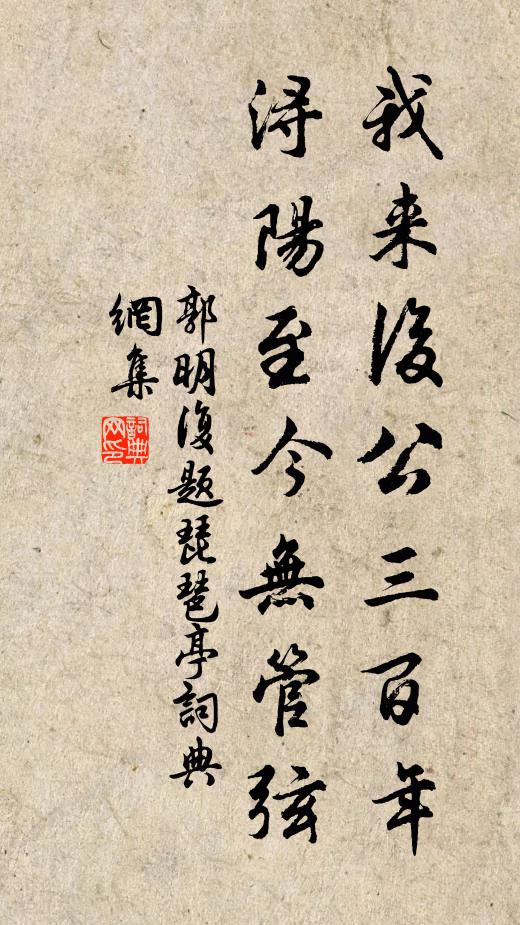 我来後公三百年
潯陽至今無管弦
郭明復題琵琶亭詞典
網集
詞典
网印